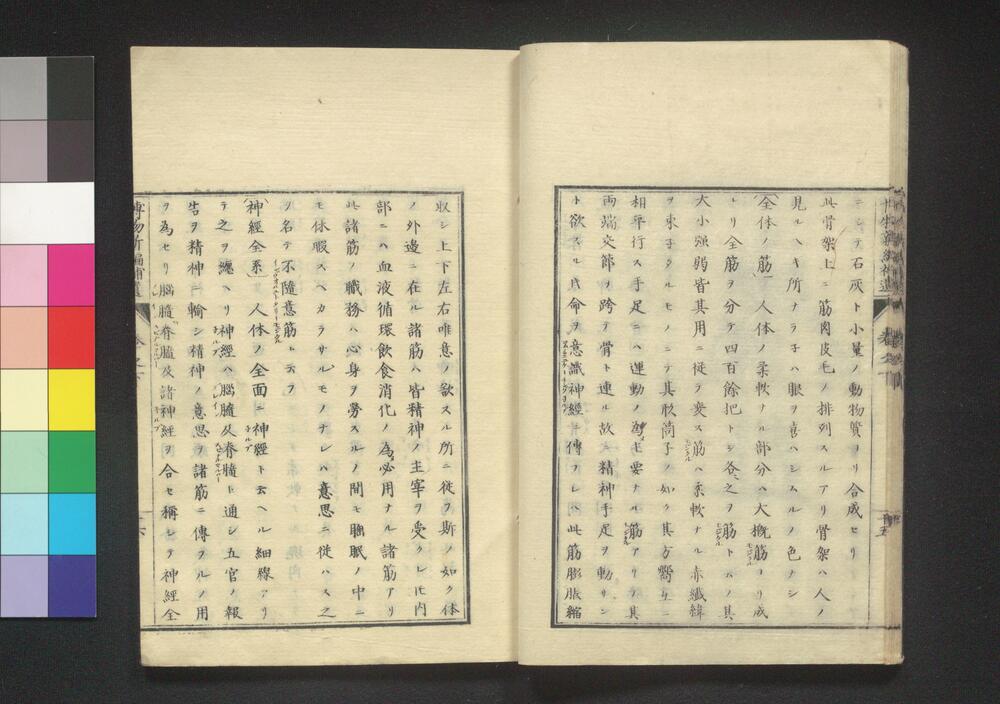 ニシテ石灰ト小量ノ動物質ヨリ合成セリ
此骨架上ニ筋肉皮毛ノ排列スルアリ骨架ハ人ノ
見ルヘキ所ナラ子ハ眼ヲ喜ハシムルノ色ナシ
全体ノ筋 人体ノ柔軟ナル部分ハ大概筋ヨリ成
トリ全筋ヲ分テ四百餘把トシ各之ヲ筋ト云ノ其
大小强弱皆其用ニ従テ変ス筋ハ柔軟ナル赤纖緯
ヲ束子タルモノニテ其形筒子ノ如ク其方嚮互ニ
相平行ス手足ニハ運動ノ為モ要ナル筋アリテ其
両端交節ヲ跨テ骨ト連ル故ニ精神手足ヲ動サン
ト欲スル片命ヲ意識神經ニ傳フレハ此筋膨脹縮
収シ上下左右唯意ノ欲スル所ニ従フ斯ノ如ク体
ノ外邊ニ在ル諸筋ハ皆精神ノ主宰ヲ受クレ𪜈内
部ニハ血液循環飲食消化ノ為必用ナル諸筋アリ
此諸筋ノ職務ハ心身ヲ勞スルノ間モ睡眠ノ中ニ
モ休暇スヘカラサルモノナレハ意思ニ従ハス之
ヲ名テ不隨意筋ト云フ
神經全系 人体ノ全面ニ神經ト云ヘル細線アリ
テ之ヲ纏ヘリ神經ハ腦髓及脊髓ト通シ五官ノ報
告ヲ精神ニ輸シ精神ノ意思ヲ諸筋ニ傳フルノ用
ヲ為セリ腦髓脊髓及諸神經ヲ合セ稱シテ神經全
博物新編補遺